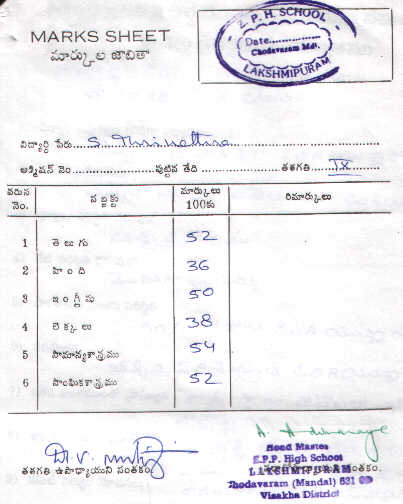 MARKS SHEET
మార్కుల జాబితా
Z. P. H. SCHOOL
Date...............
Chodavaram Mdl.
LAKSHMIPURAM
విద్యార్థి పేరు.....S.
అడ్మిషన్ నెం......................పుట్టిన తేది....................తరగతి....IX........
వరుస నెం. సబ్జక్టు మార్కులు 100కు రిమార్కులు
1 తెలుగు 52
2 హింది 36
3 ఇంగ్లీషు 50
4 లెక్కలు 38
5 సామాన్యశాస్త్రము 54
6 సాంఘికశాస్త్రము 52
తరగతి ఉపాధ్యాయుని సంతకం.
సంతకం.
Head Master
Z.P.P. High School
LAKSHMIPURAM
Chodavaram (Mandal) 531 0
Visakha District